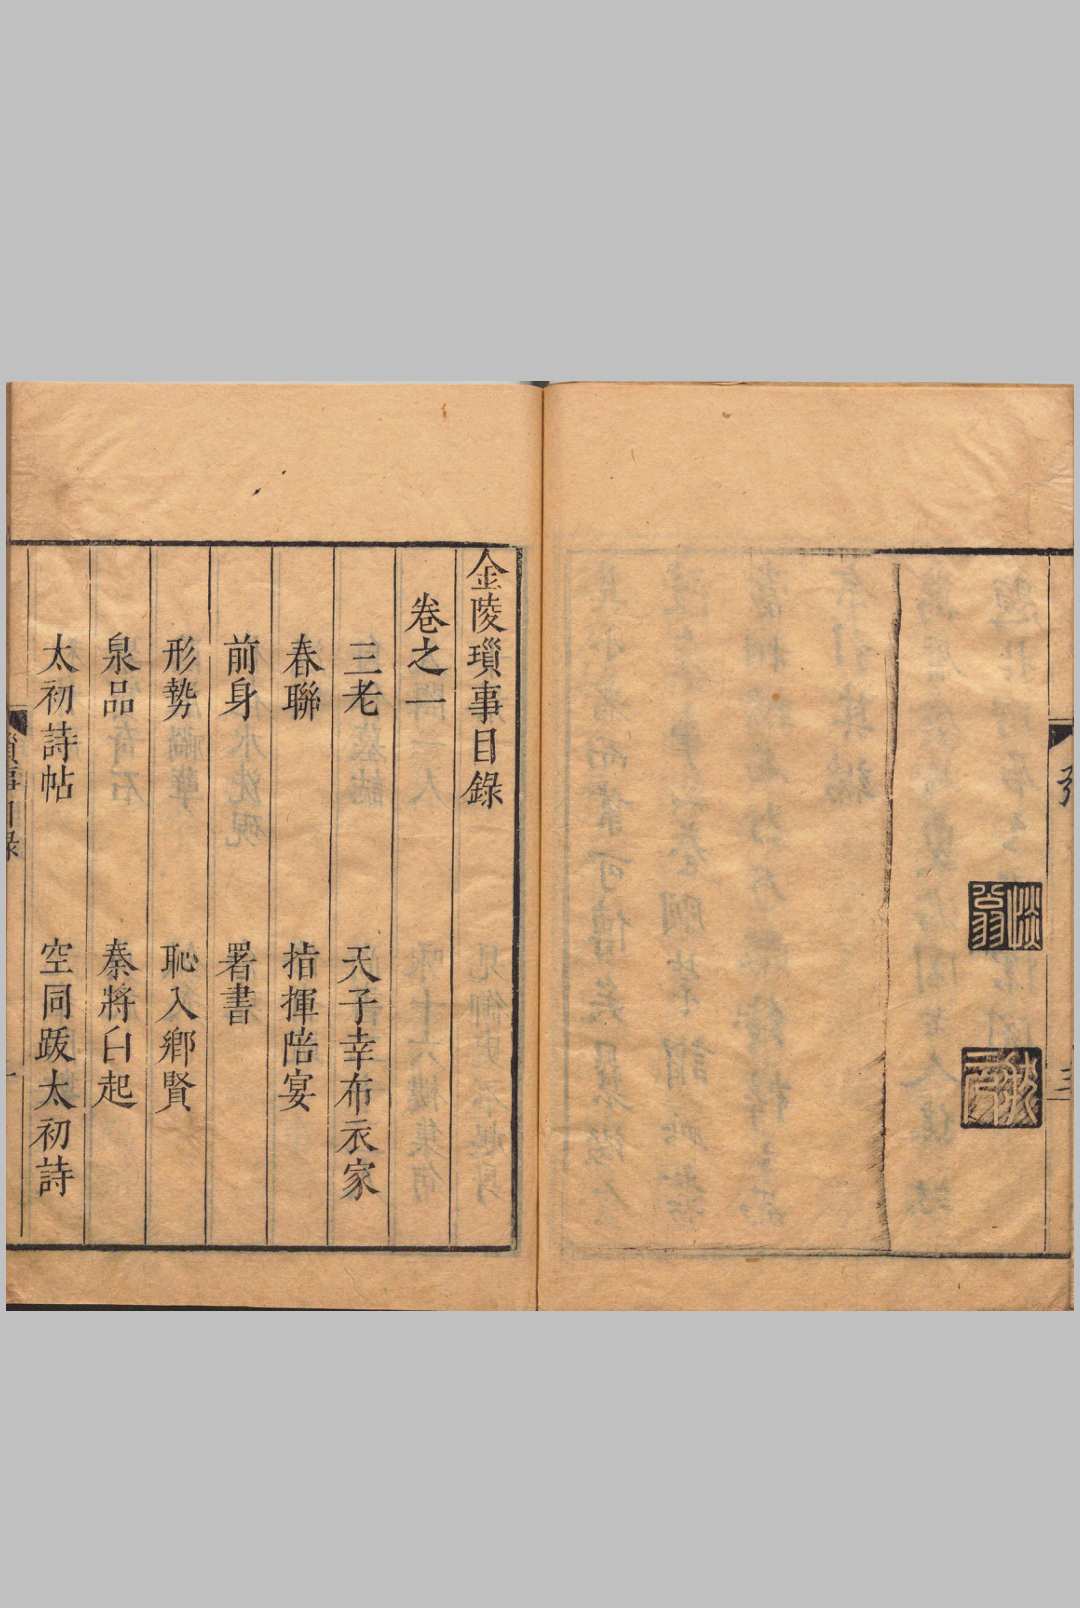 引
三
澹翁
金陵瑣事目錄
卷之一
三老 天子幸布衣家
春聯 指揮陪宴
前身 署書
形勢 恥入鄉賢
泉品 秦將白起
太初詩帖 空同跋太初詩
瑣事目錄
一